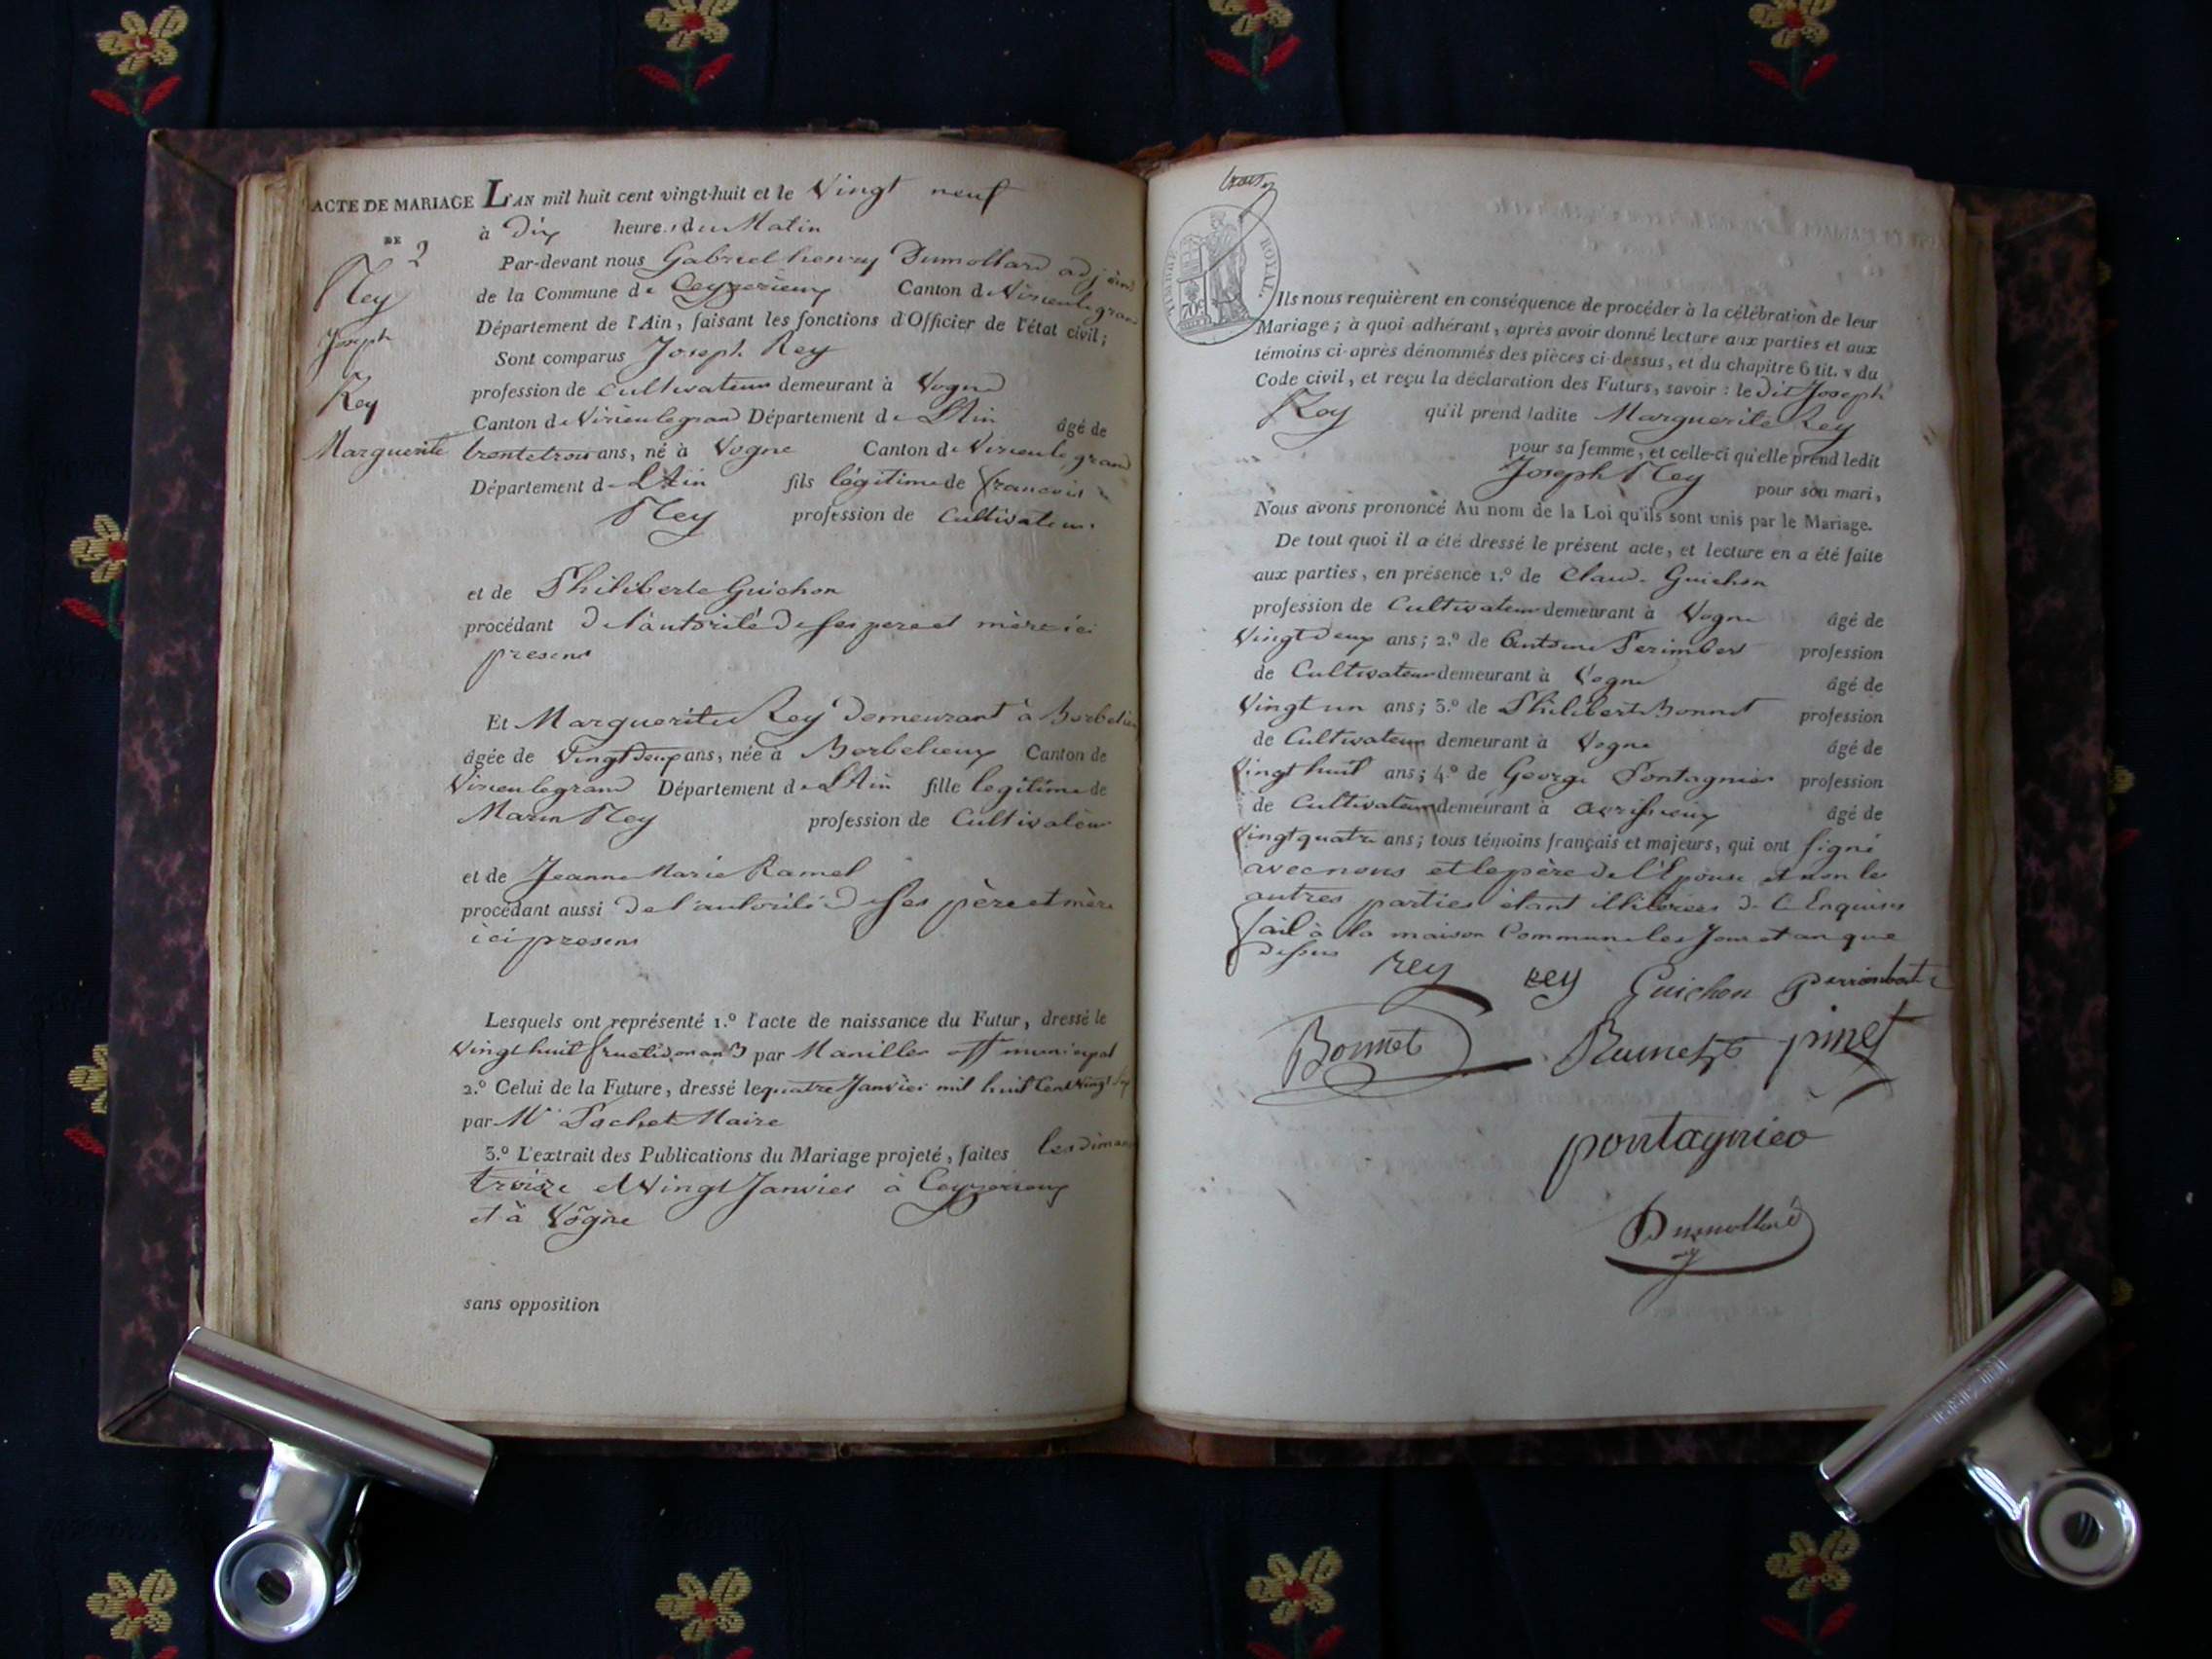 ACTE DE MARIAGE
DE 2
Rey
Joseph
Rey
Marguerite
L'AN mil huit cent vingt-huit et le Vingt neuf
à Dix heures du Matin
Par-devant nous Gabriel henry Dumollard adjoint
de la Commune de Ceyzerieux Canton de Virieulegrand
Département de l'Ain, faisant les fonctions d'Officier de l'état civil;
Sont comparus Joseph Rey
profession de Cultivateur demeurant à Vogne
Canton de Virieulegrand Département de L'Ain âgé de
trentetrois ans, né à Vogne Canton de Virieulegrand
Département de L'Ain fils légitime de françois
Rey profession de Cultivateur
et de Philiberte Guichon
procédant De l'autorité De ses pere et mère ici
presens
Et Marguerite Rey Demeurant à Borbelieux
âgée de Vingt Deux ans, née à Borbelieux Canton de
Virieulegrand Département de L'Ain fille legitime de
Marin Rey profession de Cultivateur
et de Jeanne Marie Ramel
procédant aussi De l'autorité De ses père et mère
ici presens
Lesquels ont représenté 1.º l'acte de naissance du Futur, dressé le
Vingt huit fructidor an 3 par Manillier off municipal
2.º Celui de la Future, dressé le quatre Janvier mil huit Cent Vingt
par Mr Pochet Maire
3.º L'extrait des Publications du Mariage projeté, faites les diman
treize et Vingt Janvier à Ceyzerieux
et à Vogne
sans opposition
TIMBRE ROYAL
70
Ils nous requièrent en conséquence de procéder à la célébration de leur
Mariage; à quoi adhérant, après avoir donné lecture aux parties et aux
témoins ci-après dénommés des pièces ci-dessus, et du chapitre 6 tit. v du
Code civil, et reçu la déclaration des Futurs, savoir: le Dit Joseph
Rey qu'il prend ladite Marguerite Rey
pour sa femme, et celle-ci qu'elle prend ledit
Joseph Rey pour son mari,
Nous avons prononcé Au nom de la Loi qu'ils sont unis par le Mariage.
De tout quoi il a été dressé le présent acte, et lecture en a été faite
aux parties, en présence 1.º de Claude Guichon
profession de Cultivateur demeurant à Vogne âgé de
Vingt Deux ans; 2.º de Antoine Perimbert profession
de Cultivateur demeurant à Vogne âgé de
Vingt un ans; 3.º de Philibert Bonnet profession
de Cultivateur demeurant à Vogne âgé de
Vingt huit ans; 4.º de George Pontagnier profession
de Cultivateur demeurant à avrissieux âgé de
Vingt quatre ans; tous témoins français et majeurs, qui ont signé
avec nous et le père de l'Epouse et non les
autres parties étant illiterées De Ce Enquises
fait à la maison Commune les Jour et an que
dessus
rey rey Guichon perrimbert
Bonnet pinet
pontagnieo
Dumollard